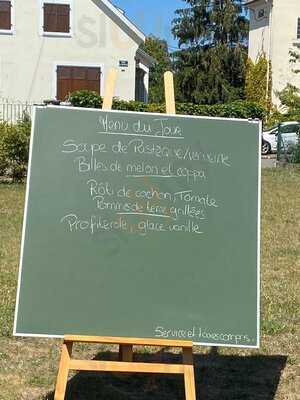 Menu du Jour
Soupe de Pastèque/verveine
Billes de melon et coppa
Rôti de cochon, Tomate
Pommes de terre grillées
Profiterole, glace vanille
Service et taxes compris.